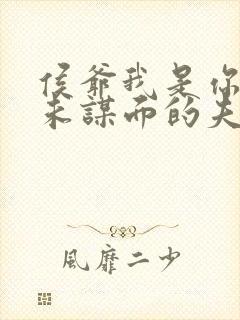 侯爺我是你
未謀面的夫
風靡二少